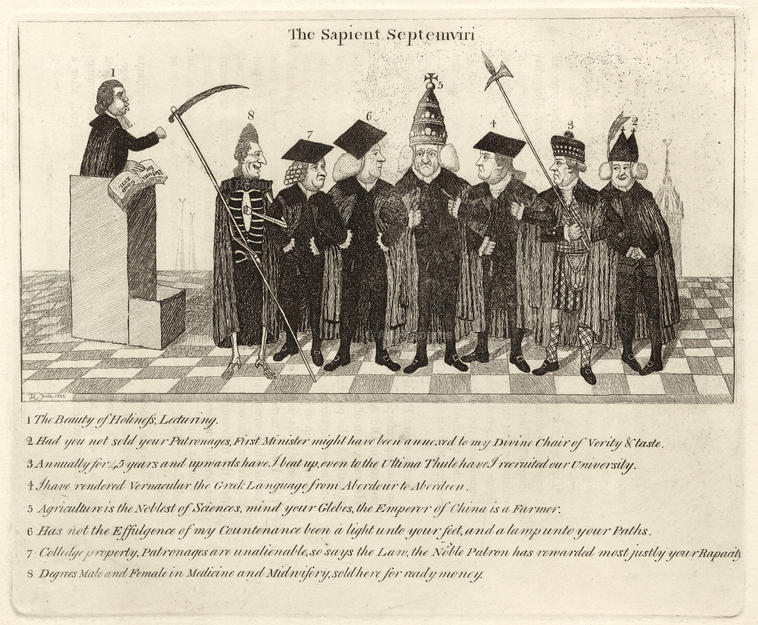 The Sapient Septemviri
1
8
7
6
5
4
3
2
1 The Beauty of Holiness, Lecturing.
2 Had you not sold your Patronages, First Minister might have been annexed to my Divine Chair of Verity & taste.
3 Annually for 45 years and upwards have I beat up, even to the Ultima Thule have I recruited our University.
4 I have rendered Vernacular the Greek Language from Aberdour to Aberdeen.
5 Agriculture is the Noblest of Sciences, mind your Glebes, the Emperor of China is a Farmer.
6 Has not the Effulgence of my Countenance been a light unto your feet, and a lamp unto your Paths.
7 Colledge property, Patronages are unalienable, so says the Law, the Noble Patron has rewarded most justly your Rapacity
8 Degrees Male and Female in Medicine and Midwifery, sold here for ready money.